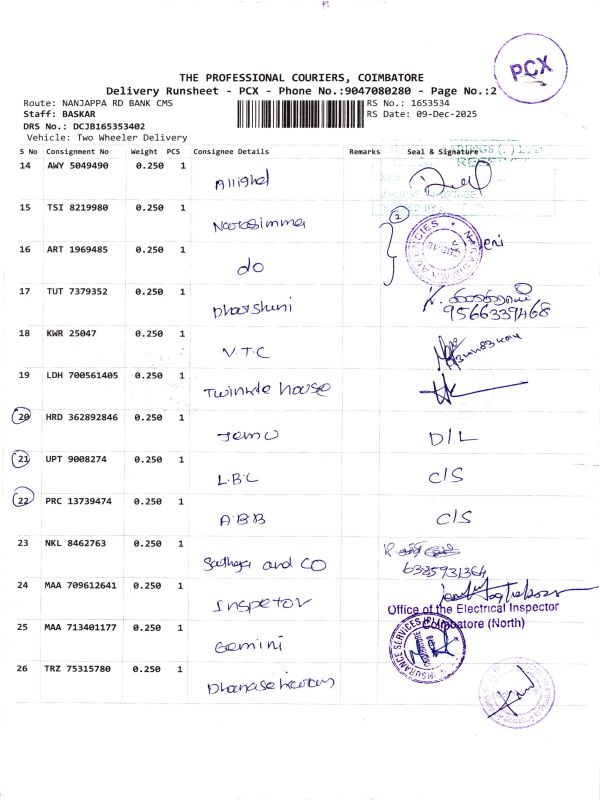 PCX
THE PROFESSIONAL COURIERS, COIMBATORE
Delivery Runsheet - PCX - Phone No.:9047080280 - Page No.:2
Route: NANJAPPA RD BANK CMS
RS No.: 1653534
Staff: BASKAR
RS Date: 09-Dec-2025
DRS No.: DCJB165353402
Vehicle: Two Wheeler Delivery
S No Consignment No Weight PCS Consignee Details Remarks Seal & Signature
14 AWY 5049490 0.250 1
15 TSI 8219980 0.250 1 Narasimma 2
16 ART 1969485 0.250 1 do
17 TUT 7379352 0.250 1 Dharshini
9566339468
18 KWR 25047 0.250 1 V.T.C
19 LDH 700561405 0.250 1 Twinkle house
20 HRD 362892846 0.250 1 Jemo D/L
21 UPT 9008274 0.250 1 L.B.C C/S
22 PRC 13739474 0.250 1 A.B.B C/S
23 NKL 8462763 0.250 1 Sathya and CO
6385931364
24 MAA 709612641 0.250 1 Inspetor
Office of the Electrical Inspector
Coimbatore (North)
25 MAA 713401177 0.250 1 Gemini
26 TRZ 75315780 0.250 1